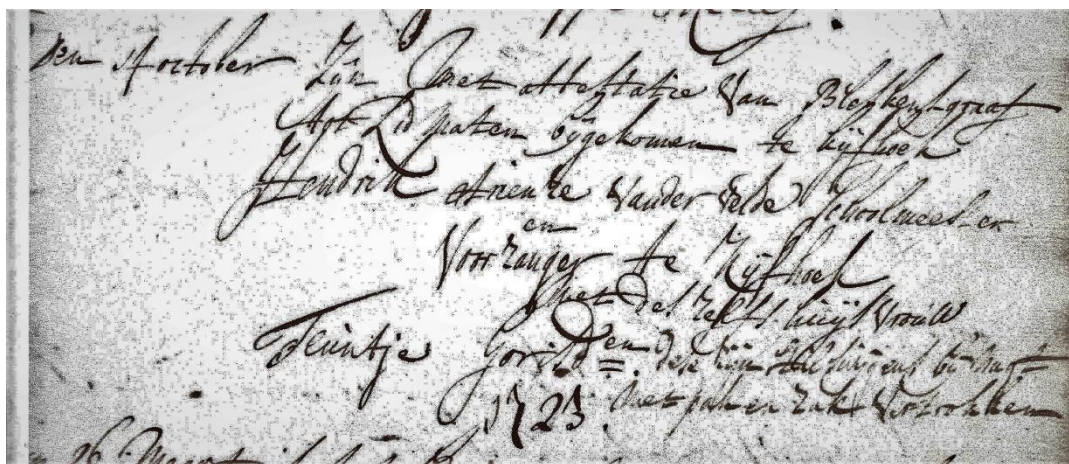 den october Zijn met attestatie van Bleijkensgraaf
tot Lidmaten bijgekomen te kijfhoek
Hendrik Arienze vander Velde Schoolmeester
en
Voorzanger te Kijfhoek
met deszelfs huijsvrouw
Teuntje Goris = en dese zijn bij
1723. met pak en zak vertrokken
26 Maert